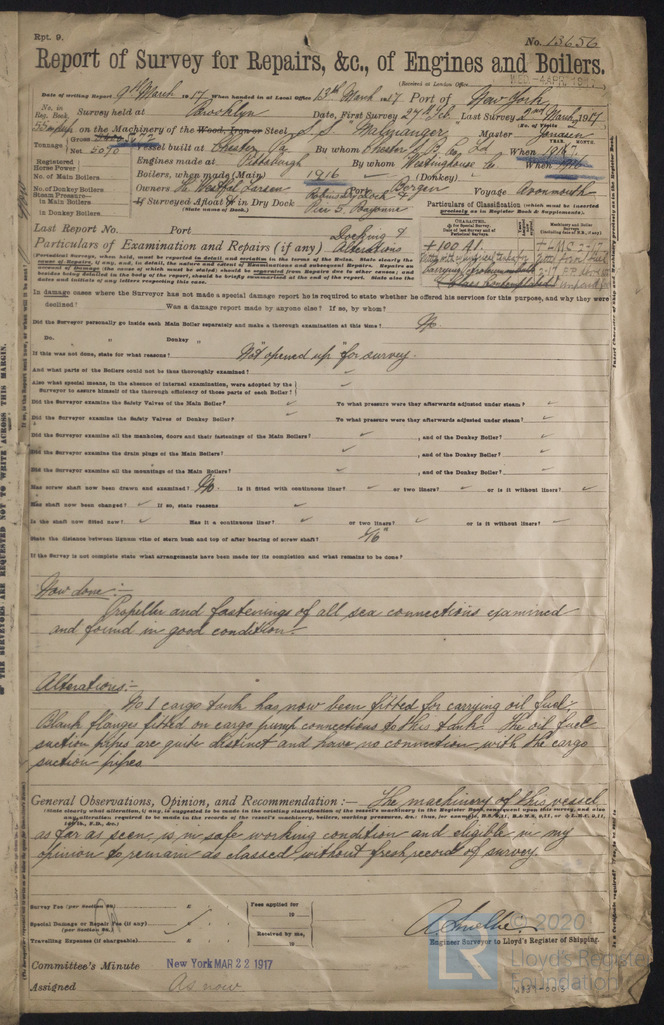 Rpt. 9.
No. 13656
Report of Survey for Repairs, &c., of Engines and Boilers.
(Received at London Office
WED. 4 APR. 1917
Date of writing Report 9th March 1917 When handed in at Local Office 13th March 1917 Port of New York
No. in Reg. Book. Survey held at Brooklyn Date, First Survey 27th Feb Last Survey 2nd March 1917
(No. of Visits
on the Machinery of the Wood, Iron or Steel S. S. Master Jensen
Tonnage Gross
Net 5090
Vessel built at Chester Pa By whom Chester S. B. Co. Ld When 1916
YEAR. MONTH.
Registered Horse Power
Engines made at Pittsburgh By whom Westinghouse Co When 1916
No. of Main Boilers
Boilers, when made (Main) 1916 (Donkey)
No. of Donkey Boilers
Owners H. Westfal Larsen Port Bergen Voyage Avonmouth
Steam Pressure in Main Boilers
in Donkey Boilers
If Surveyed Afloat or in Dry Dock Robins Dry Dock &
(State name of Dock.) Pier 5, Bayonne
Particulars of Classification (which must be inserted precisely as in Register Book & Supplements).
Last Report No. Port
Particulars of Examination and Repairs (if any) Docking & Alterations
+ 100 A1.
+ LMC 2-17
Carrying petroleum in bulk
(Periodical Surveys, when held, must be reported in detail and seriatim in the terms of the Rules. State clearly the cause of Repairs, if any, and, in detail, the nature and extent of Examinations and subsequent Repairs. Repairs on account of Damage (the cause of which must be stated) should be separated from Repairs due to other causes; and besides being detailed in the body of the report, should be briefly summarized at the end of the report. State also the dates and initials of any letters respecting this case.)
In damage cases where the Surveyor has not made a special damage report he is required to state whether he offered his services for this purpose, and why they were
declined? Was a damage report made by anyone else? If so, by whom?
Did the Surveyor personally go inside each Main Boiler separately and make a thorough examination at this time? No
Do. " Donkey " " "
If this was not done, state for what reasons? Not "opened up" for survey.
And what parts of the Boilers could not be thus thoroughly examined?
Also what special means, in the absence of internal examination, were adopted by the Surveyor to assure himself of the thorough efficiency of those parts of each Boiler?
Did the Surveyor examine the Safety Valves of the Main Boiler? To what pressure were they afterwards adjusted under steam?
Did the Surveyor examine the Safety Valves of Donkey Boiler? To what pressure were they afterwards adjusted under steam?
Did the Surveyor examine all the manholes, doors and their fastenings of the Main Boilers? , and of the Donkey Boiler?
Did the Surveyor examine the drain plugs of the Main Boilers? , and of the Donkey Boiler?
Did the Surveyor examine all the mountings of the Main Boilers? , and of the Donkey Boiler?
Has screw shaft now been drawn and examined? No. Is it fitted with continuous liner? or two liners? or is it without liners?
Has shaft now been changed? If so, state reasons
Is the shaft now fitted new? Has it a continuous liner? or two liners? or is it without liner?
State the distance between lignum vitæ of stern bush and top of after bearing of screw shaft? 1/16"
If the Survey is not complete state what arrangements have been made for its completion and what remains to be done?
Now done:-
Propeller and fastenings of all sea connections examined
and found in good condition.
Alterations:-
No 1 cargo tank has now been fitted for carrying oil fuel.
Blank flanges fitted on cargo pump connections to this tank. The oil fuel
suction pipes are quite distinct and have no connection with the cargo
suction pipes.
General Observations, Opinion, and Recommendation:— The machinery of this vessel
as far as seen, is in safe working condition and eligible in my
opinion to remain as classed without fresh record of survey.
Survey Fee (per Section 29)
Special Damage or Repair Fee (if any)
(per Section 29.)
Travelling Expenses (if chargeable)
Fees applied for
19
Received by me,
19
Engineer Surveyor to Lloyd's Register of Shipping.
Committee's Minute New York MAR 22 1917
Assigned As now
© 2020
Lloyd's Register
Foundation
LR